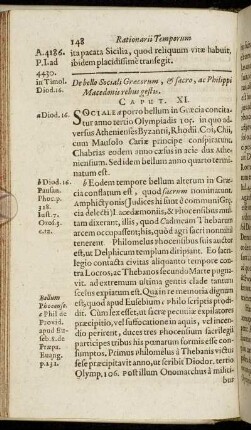 148 Rationarii Temporum
A. 4186. ita pacata Sicilia, quod reliquum vitæ habuit,
P. I. ad ibidem placidissimè transegit.
4430.
in Timol. De bello Sociali Græcorum, & sacro, ac Philippi
Diod. 16. Macedonis rebus gestis.
CAPUT. XI.
a Diod. 16. SOCIALE a porro bellum in Græcia concita-
tur anno tertio Olympiadis 105. in quo ad-
versus Athenienses Byzanni, Rhodii, Coi, Chii,
cum Mausolo Cariæ principe conspirarunt,
Chabrias eodem anno cæsus in acie dux Athe-
niensium. Sed idem bellum anno quarto termi-
natum est.
b Diod. 16. b Eodem tempore bellum alterum in Græ-
Pausan. cia conflatum est, quod sacrum nominatum.
Phoc. p. Amphictyonis (Judices hi sunt è communi Græ-
328.
Just. 7. cia delecti) Lacedæmonios, & Phocenses mul-
Oros. 3. ctam dixerant, illis, quod Cadmeam Thebarum
c. 12. arcem occupassent; his, quòd agri sacri nonnihil
tenerent. Philomelus phocensibus suis auctor
est, ut Delphicum templum diripiant. Eo sacri-
legio contacta civitas aliquanto tempore con-
tra Locros, ac Thebanos secundo Marte pugna-
vit. ad extremum ultima gentis clade tantum
Bellum scelus expiatum est. Qua in re memoria dignum
Phocense. est, quod apud Eusebium c Philo scriptis prodi-
c Phil de dit. Cùm lex esset, ut sacræ pecuniæ expilatores
Provid. præcipitio, vel suffocatione in aquis, vel incen-
apud Eu- dio perirent, duces tres Phocensium sacrilegii
seb. 8. de participes tribus his pœnarum formis esse con-
Præpa. sumptos. Primus philomelus à Thebanis victus
Euang. sese præcipitavit anno, ut scribit Diodor. tertio
p. 132. Olymp. 106. Post illum Onomarchus à militi-
bus